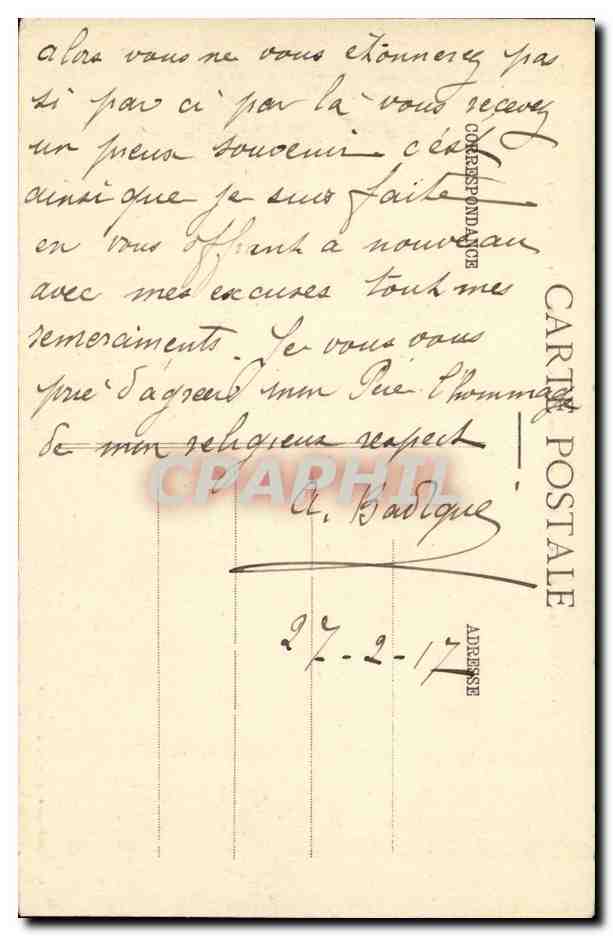 alors vous ne vous étonnerez pas
si par ci par là vous recevez
un pieux souvenir c'est
ainsi que je suis faite
en vous offrant a nouveau
avec mes excuses tout mes
remerciments. Je vous vous
prie d'agreer mon Père l'hommage
de mon religieux respect
A.
27-2-17
CORRESPONDANCE
CARTE POSTALE
ADRESSE
CPAPHIL